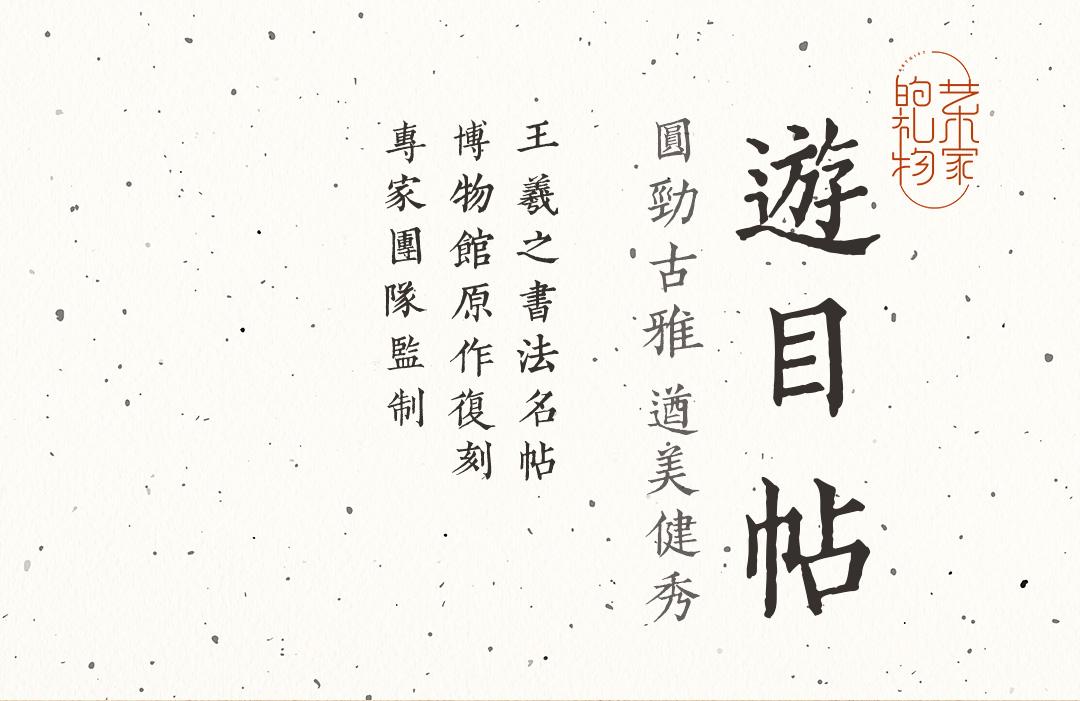 艺术家
的礼物
遊目帖
圓勁古雅 遒美健秀
王羲之書法名帖
博物館原作復刻
專家團隊監制